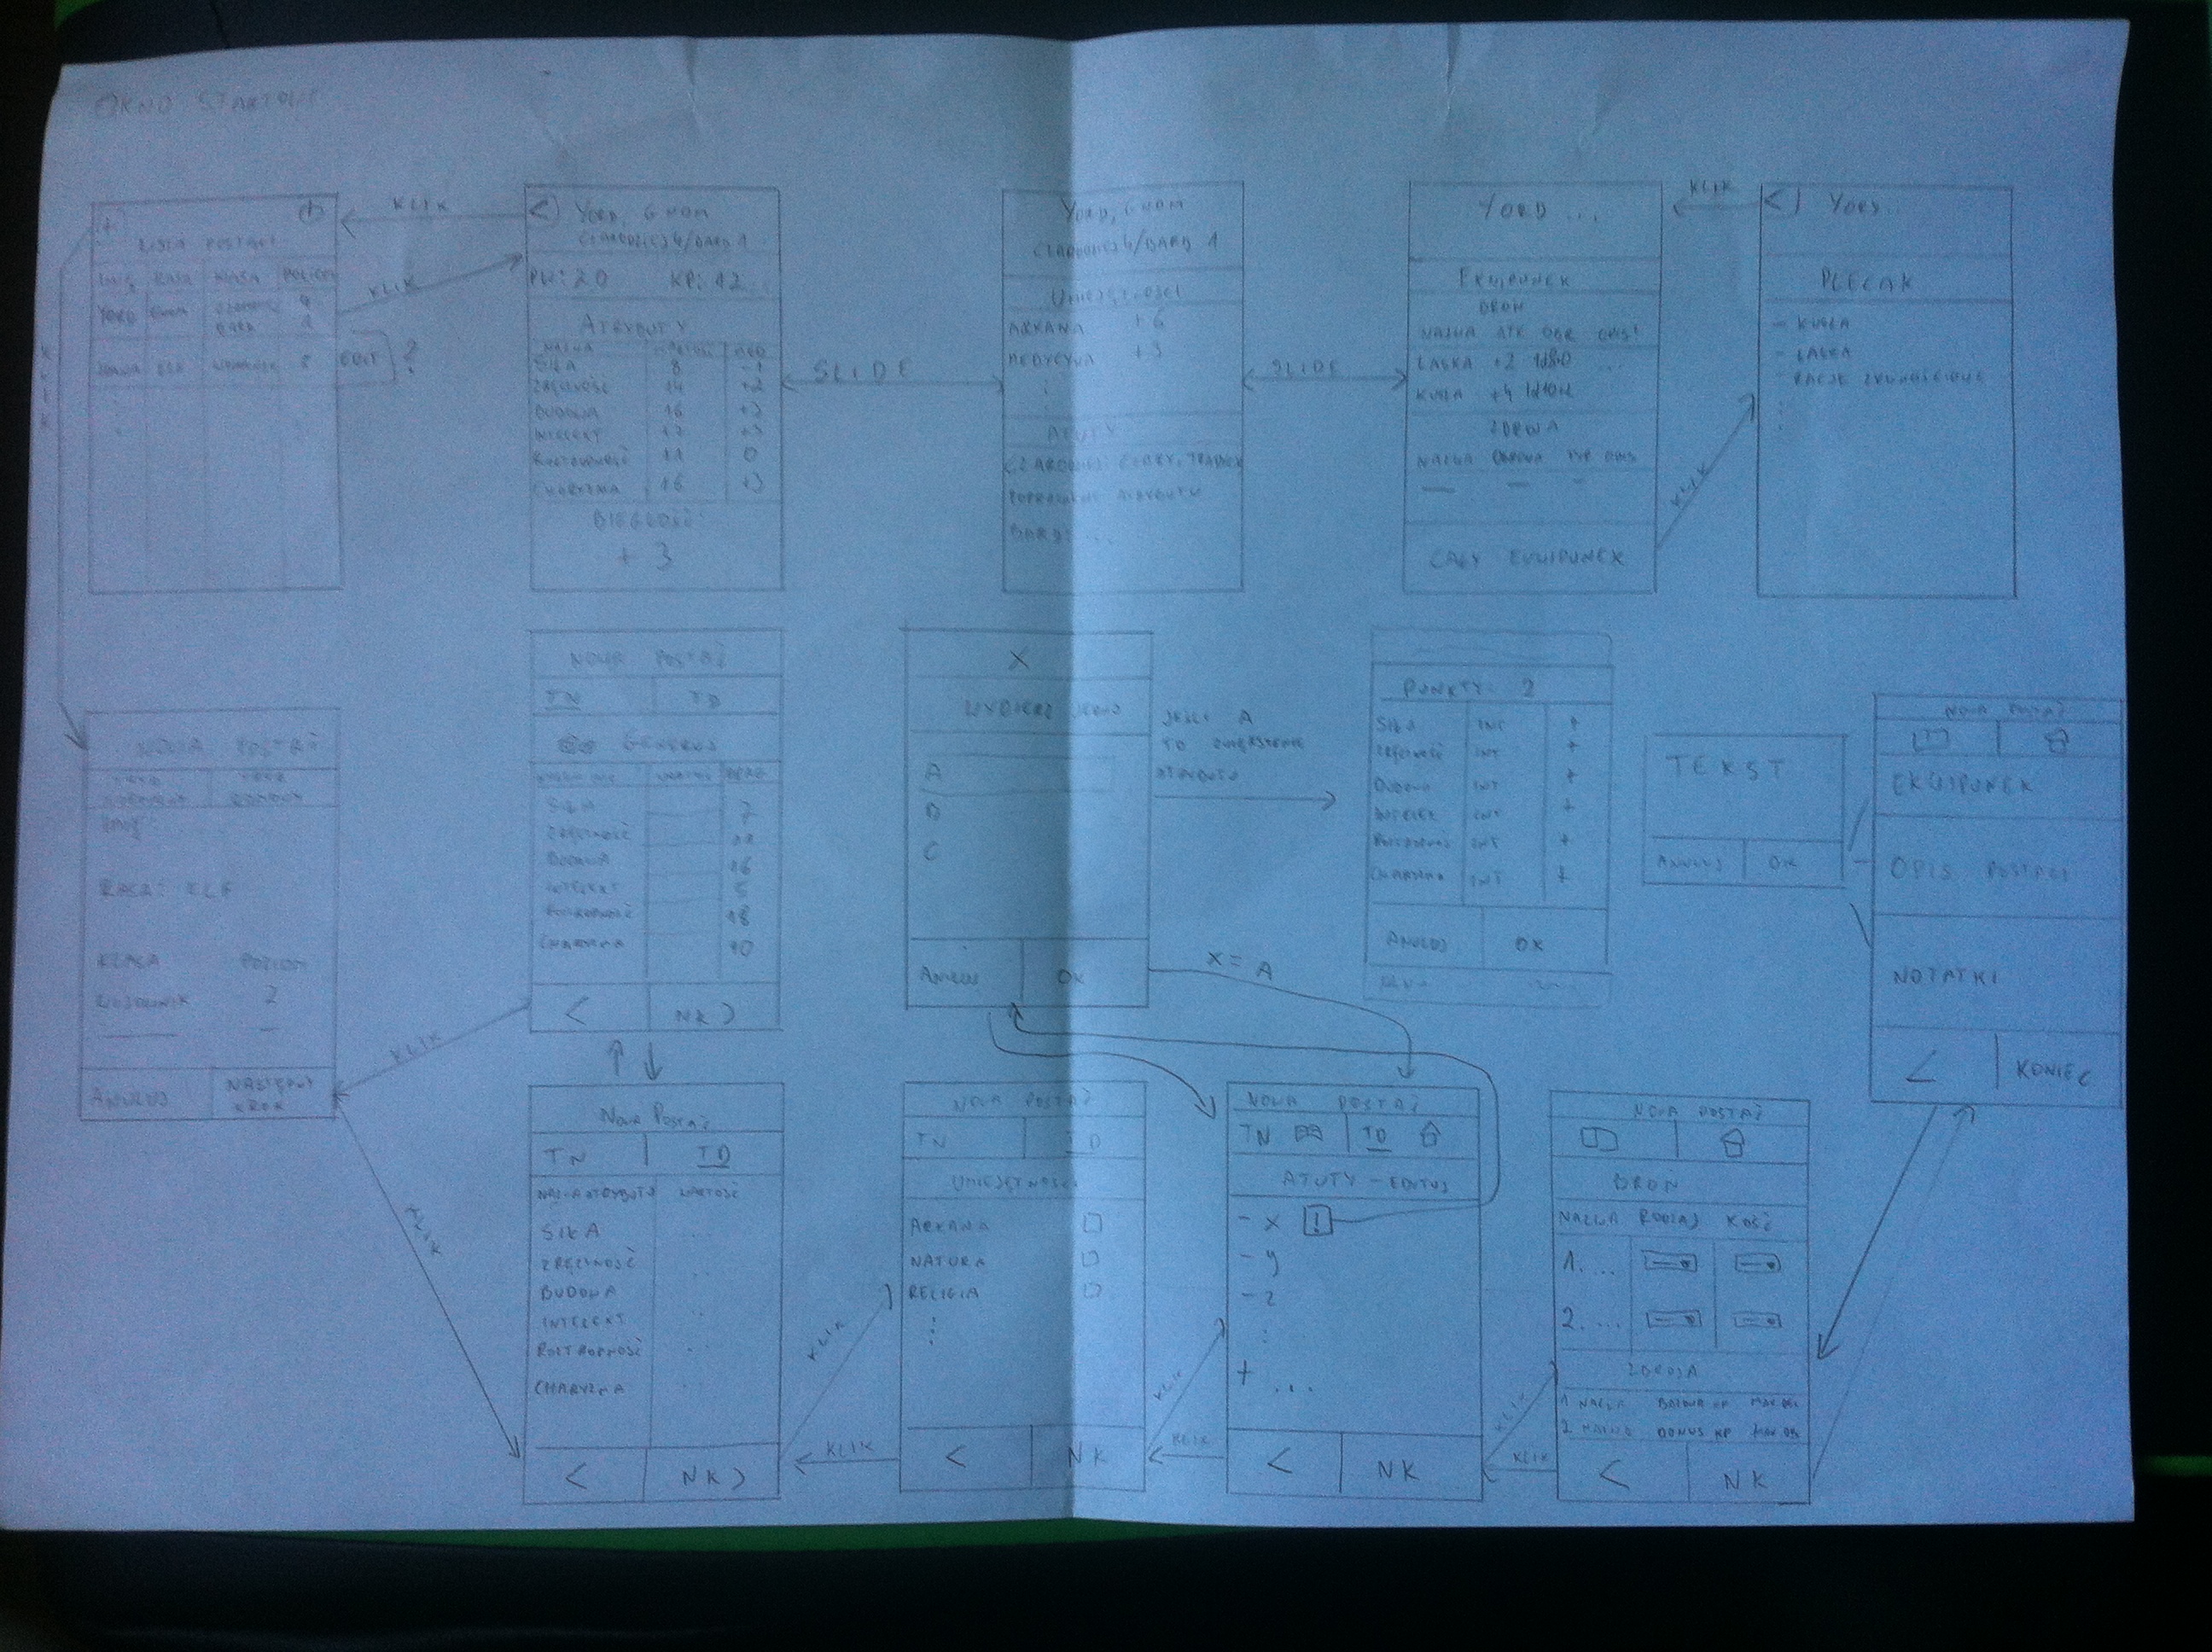 OKNO STARTOWE
KLIK
+
LISTA POSTACI
IMIĘ RASA KLASA POZIOM
YORD GNOM 4
BARD 1
ELF 8 EDIT ?
KLIK
KLIK
< YORD, GNOM
CZARODZIEJ 4/BARD 1
PW: 20 KP: 12
ATRYBUTY
NAZWA WARTOŚĆ MOD
SIŁA 8 -1
ZRĘCZNOŚĆ 14 +2
BUDOWA 16 +3
INTELEKT 17 +3
ROZTROPNOŚĆ 11 0
CHARYZMA 16 +3
BIEGŁOŚĆ:
+3
SLIDE
YORD, GNOM
CZARODZIEJ 4/BARD 1
UMIEJĘTNOŚCI
ARKANA +6
MEDYCYNA +3
ATUTY
CZARODZIEJ: CZARY, TRADYCJA
ATRYBUTU
BARD: ...
SLIDE
YORD ...
EKWIPUNEK
BROŃ
NAZWA ATK OBR OPIS
LASKA +2 ...
KUSZA +4
ZBROJA
NAZWA OBRONA TYP OPIS
CAŁY EKWIPUNEK
KLIK
KLIK
< YORD
PLECAK
- KUSZA
- LASKA
- RACJE ŻYWNOŚCIOWE
NOWA POSTAĆ
IMIĘ
RASA: ELF
KLASA POZIOM
WOJOWNIK 2
ANULUJ NASTĘPNY KROK
KLIK
KLIK
NOWA POSTAĆ
TN TD
GENERUJ
SIŁA 7
ZRĘCZNOŚĆ 12
BUDOWA 16
INTELEKT 5
ROZTROPNOŚĆ 18
CHARYZMA 10
< NK >
X
WYBIERZ JEDNO
A
B
C
ANULUJ OK
JEŚLI A
TO ZWIĘKSZENIE
ATRYBUTU
X = A
PUNKTY: 2
SIŁA INT +
ZRĘCZNOŚĆ INT +
BUDOWA INT +
INTELEKT INT +
ROZTROPNOŚĆ INT +
CHARYZMA INT +
ANULUJ OK
TEKST
ANULUJ OK
NOWA POSTAĆ
EKWIPUNEK
OPIS POSTACI
NOTATKI
< KONIEC
NOWA POSTAĆ
TN TD
NAZWA ATRYBUTU WARTOŚĆ
SIŁA ...
ZRĘCZNOŚĆ ..
BUDOWA
INTELEKT ..
ROZTROPNOŚĆ ..
CHARYZMA ..
< NK >
KLIK
KLIK
NOWA POSTAĆ
TN TD
UMIEJĘTNOŚCI
ARKANA
NATURA
RELIGIA
< NK
KLIK
KLIK
NOWA POSTAĆ
TN TD
ATUTY - EDYTUJ
- X !
- Y
- Z
+ ...
< NK
KLIK
KLIK
NOWA POSTAĆ
BROŃ
NAZWA RODZAJ KOŚĆ
1. ...
2. ...
ZBROJA
1 NAZWA
2 NAZWA BONUS KP
< NK